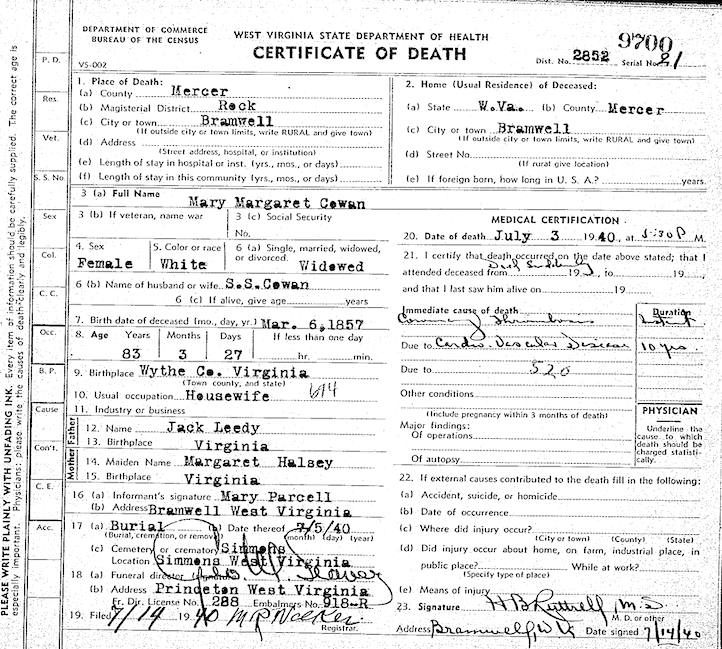 DEPARTMENT OF COMMERCE
BUREAU OF THE CENSUS
WEST VIRGINIA STATE DEPARTMENT OF HEALTH
CERTIFICATE OF DEATH
9700
Dist. No. 2852 Serial No. 21
VS-002
P. D.
Res.
Vet.
S. S. No.
Sex
Col.
C. C.
Occ.
B. P.
Cause
Con't.
C. E.
Acc.
PLEASE WRITE PLAINLY WITH UNFADING INK. Every item of information should be carefully supplied. The correct age is
especially important. Physicians: please write the causes of death clearly and legibly.
1. Place of Death:
(a) County Mercer
(b) Magisterial District Rock
(c) City or town Bramwell
(If outside city or town limits, write RURAL and give town)
(d) Address
(Street address, hospital, or institution)
(e) Length of stay in hospital or inst. (yrs., mos., or days)
(f) Length of stay in this community (yrs., mos., or days)
2. Home (Usual Residence) of Deceased:
(a) State W.Va. (b) County Mercer
(c) City or town Bramwell
(If outside city or town limits, write RURAL and give town)
(d) Street No.
(If rural give location)
(e) If foreign born, how long in U. S. A.? years
3 (a) Full Name
Mary Margaret Cowan
3 (b) If veteran, name war
3 (c) Social Security
No.
4. Sex
Female
5. Color or race
White
6 (a) Single, married, widowed,
or divorced.
Widowed
6 (b) Name of husband or wife S.S.Cowan
6 (c) If alive, give age years
7. Birth date of deceased (mo., day, yr.) Mar. 6,1857
8. Age Years Months Days If less than one day
83 3 27 hr. min.
9. Birthplace Wythe Co. Virginia
(Town county, and state)
10. Usual occupation Housewife
11. Industry or business
Father
12. Name Jack Leedy
13. Birthplace Virginia
Mother
14. Maiden Name Margaret Halsey
15. Birthplace Virginia
16 (a) Informant's signature Mary Parcell
(b) Address Bramwell West Virginia
17 (a) Burial (b) Date thereof 7/5/40
(Burial, cremation, or removal) (month) (day) (year)
(c) Cemetery or crematory Simmons
Location Simmons West Virginia
18 (a) Funeral director
(b) Address Princeton West Virginia
Fr. Dir. License No. 288 Embalmers No. 918-R
19. Filed 7/14 1940
Registrar.
MEDICAL CERTIFICATION
20. Date of death July 3 1940, at 5:30 P M.
21. I certify that death occurred on the date above stated; that I
attended deceased from 19 , to 19
and that I last saw him alive on 19
Immediate cause of death
Duration
Coronary Thrombosis
Due to Cardio-Vascular Disease 10 yrs.
Due to
Other conditions
(Include pregnancy within 3 months of death)
Major findings:
Of operations
Of autopsy
PHYSICIAN
Underline the
cause to which
death should be
charged statisti-
cally.
22. If external causes contributed to the death fill in the following:
(a) Accident, suicide, or homicide
(b) Date of occurrence
(c) Where did injury occur?
(City or town) (County) (State)
(d) Did injury occur about home, on farm, industrial place, in
public place? While at work?
(Specify type of place)
(e) Means of injury
23. Signature
M. D. or other
Address Bramwell, W Va Date signed 7/14/40